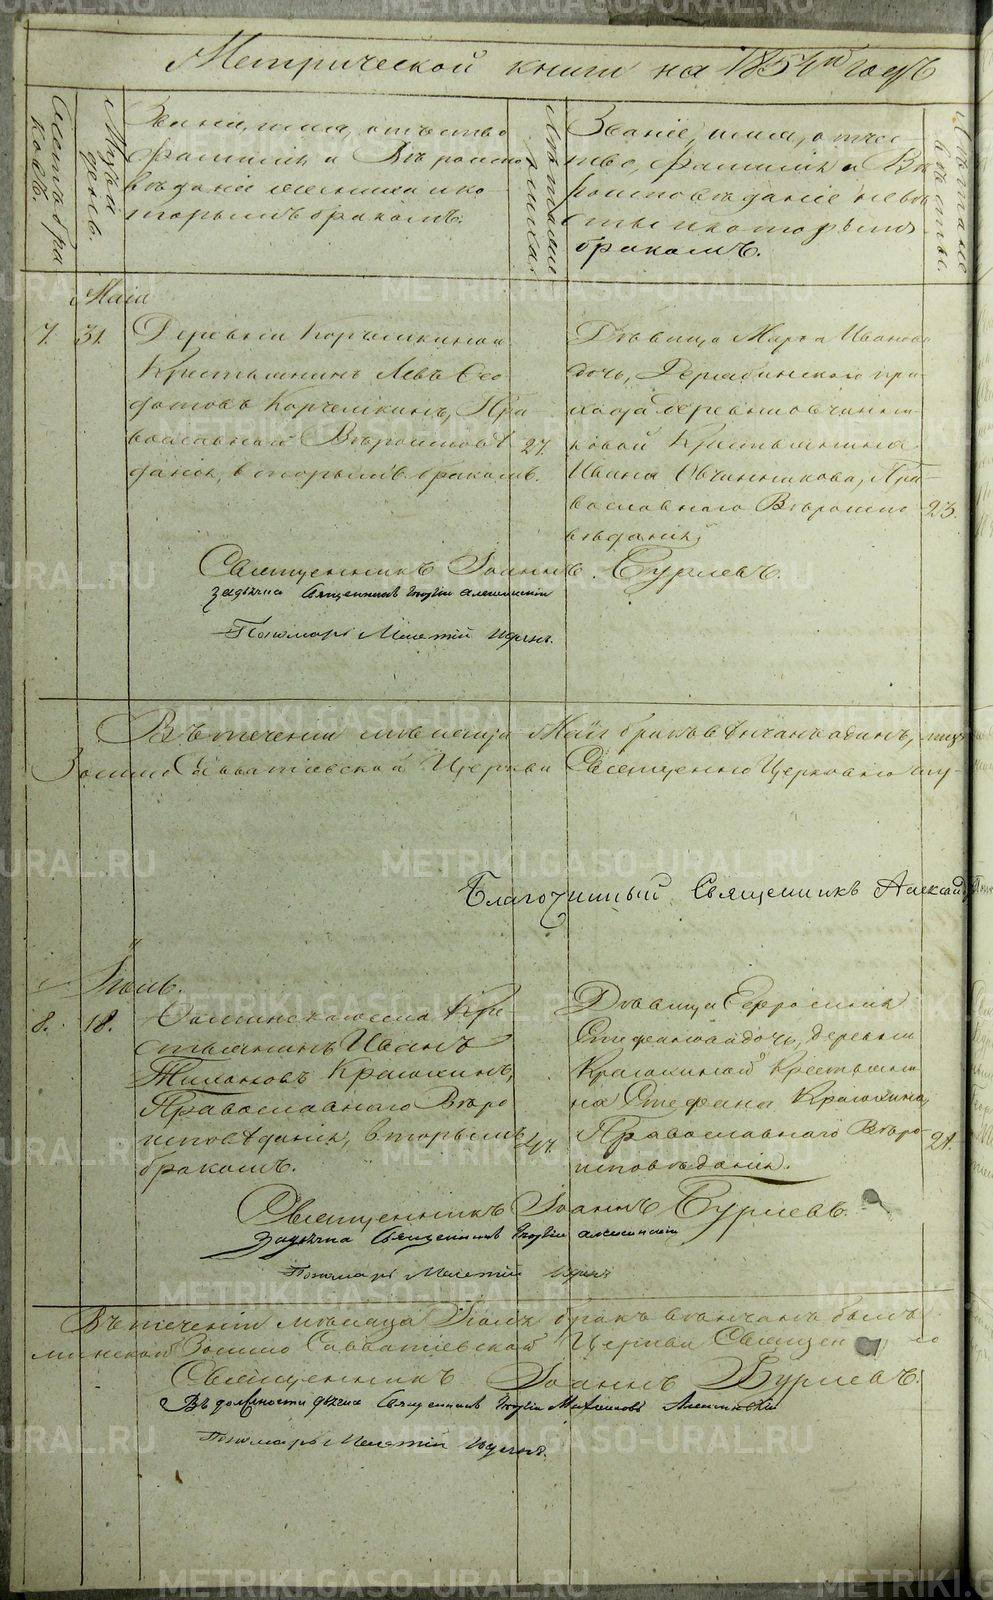 Метрической книги на 1854й годъ
Счетъ бра
ковъ.
Мѣсяцъ
день.
Званіе, имя, отчество
фамилія и Вѣроиспо
вѣданіе жениха и ко
торымъ бракомъ.
Лѣта же
ниха.
Званіе, имя, отчес
тво, фамилія и Вѣ
роисповѣданіе невѣ
сты и которымъ
бракомъ.
Лѣта не
вѣсты.
Маія
7. 31. Деревни Корчемкиной
Крестьянинъ Левъ Ѳео
дотовъ Корчемкинъ, Пра
вославнаго Вѣроисповѣ 27.
данія, вторымъ бракомъ.
Дѣвица Марѳа Иванова
дочь, при
хода деревни Овчинни
ковой Крестьянина
Ивана Овчинникова, Пра
вославнаго Вѣроиспо 23.
вѣданія
Священникъ Іоаннъ Бурлевъ.
За дьячка Священникъ
Пономарь Мелетій
Въ теченіи мѣсяца Маія бракъ вѣнчанъ одинъ,
Зосимо Савватіевской Церкви Священно Церковно слу-
Благочинный Священникъ Александ
Іюль.
8. 18. села Кре
стьянинъ Иванъ
Тихоновъ Крюкинъ,
Православнаго Вѣро
исповѣданія, вторымъ
бракомъ.
Дѣвица Ефросинія
Стефанова дочь, деревни
Крюкиной Крестьяни
на Стефана Крюкина,
Православнаго Вѣро- 21.
исповѣданія.
Священникъ Іоаннъ Бурлевъ.
За дьячка Священникъ
Пономарь Мелетій
Въ теченіи мѣсяца Іюля бракъ вѣнчанъ былъ
Зосимо Савватіевской Церкви Священ
Священникъ Іоаннъ Бурлевъ.
Въ должности дьячка Священникъ
Пономарь Мелетій
METRIKI.GASO-URAL.RU